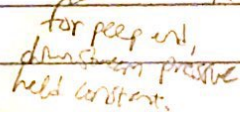 for peep end,
downstream pressure
held constant.